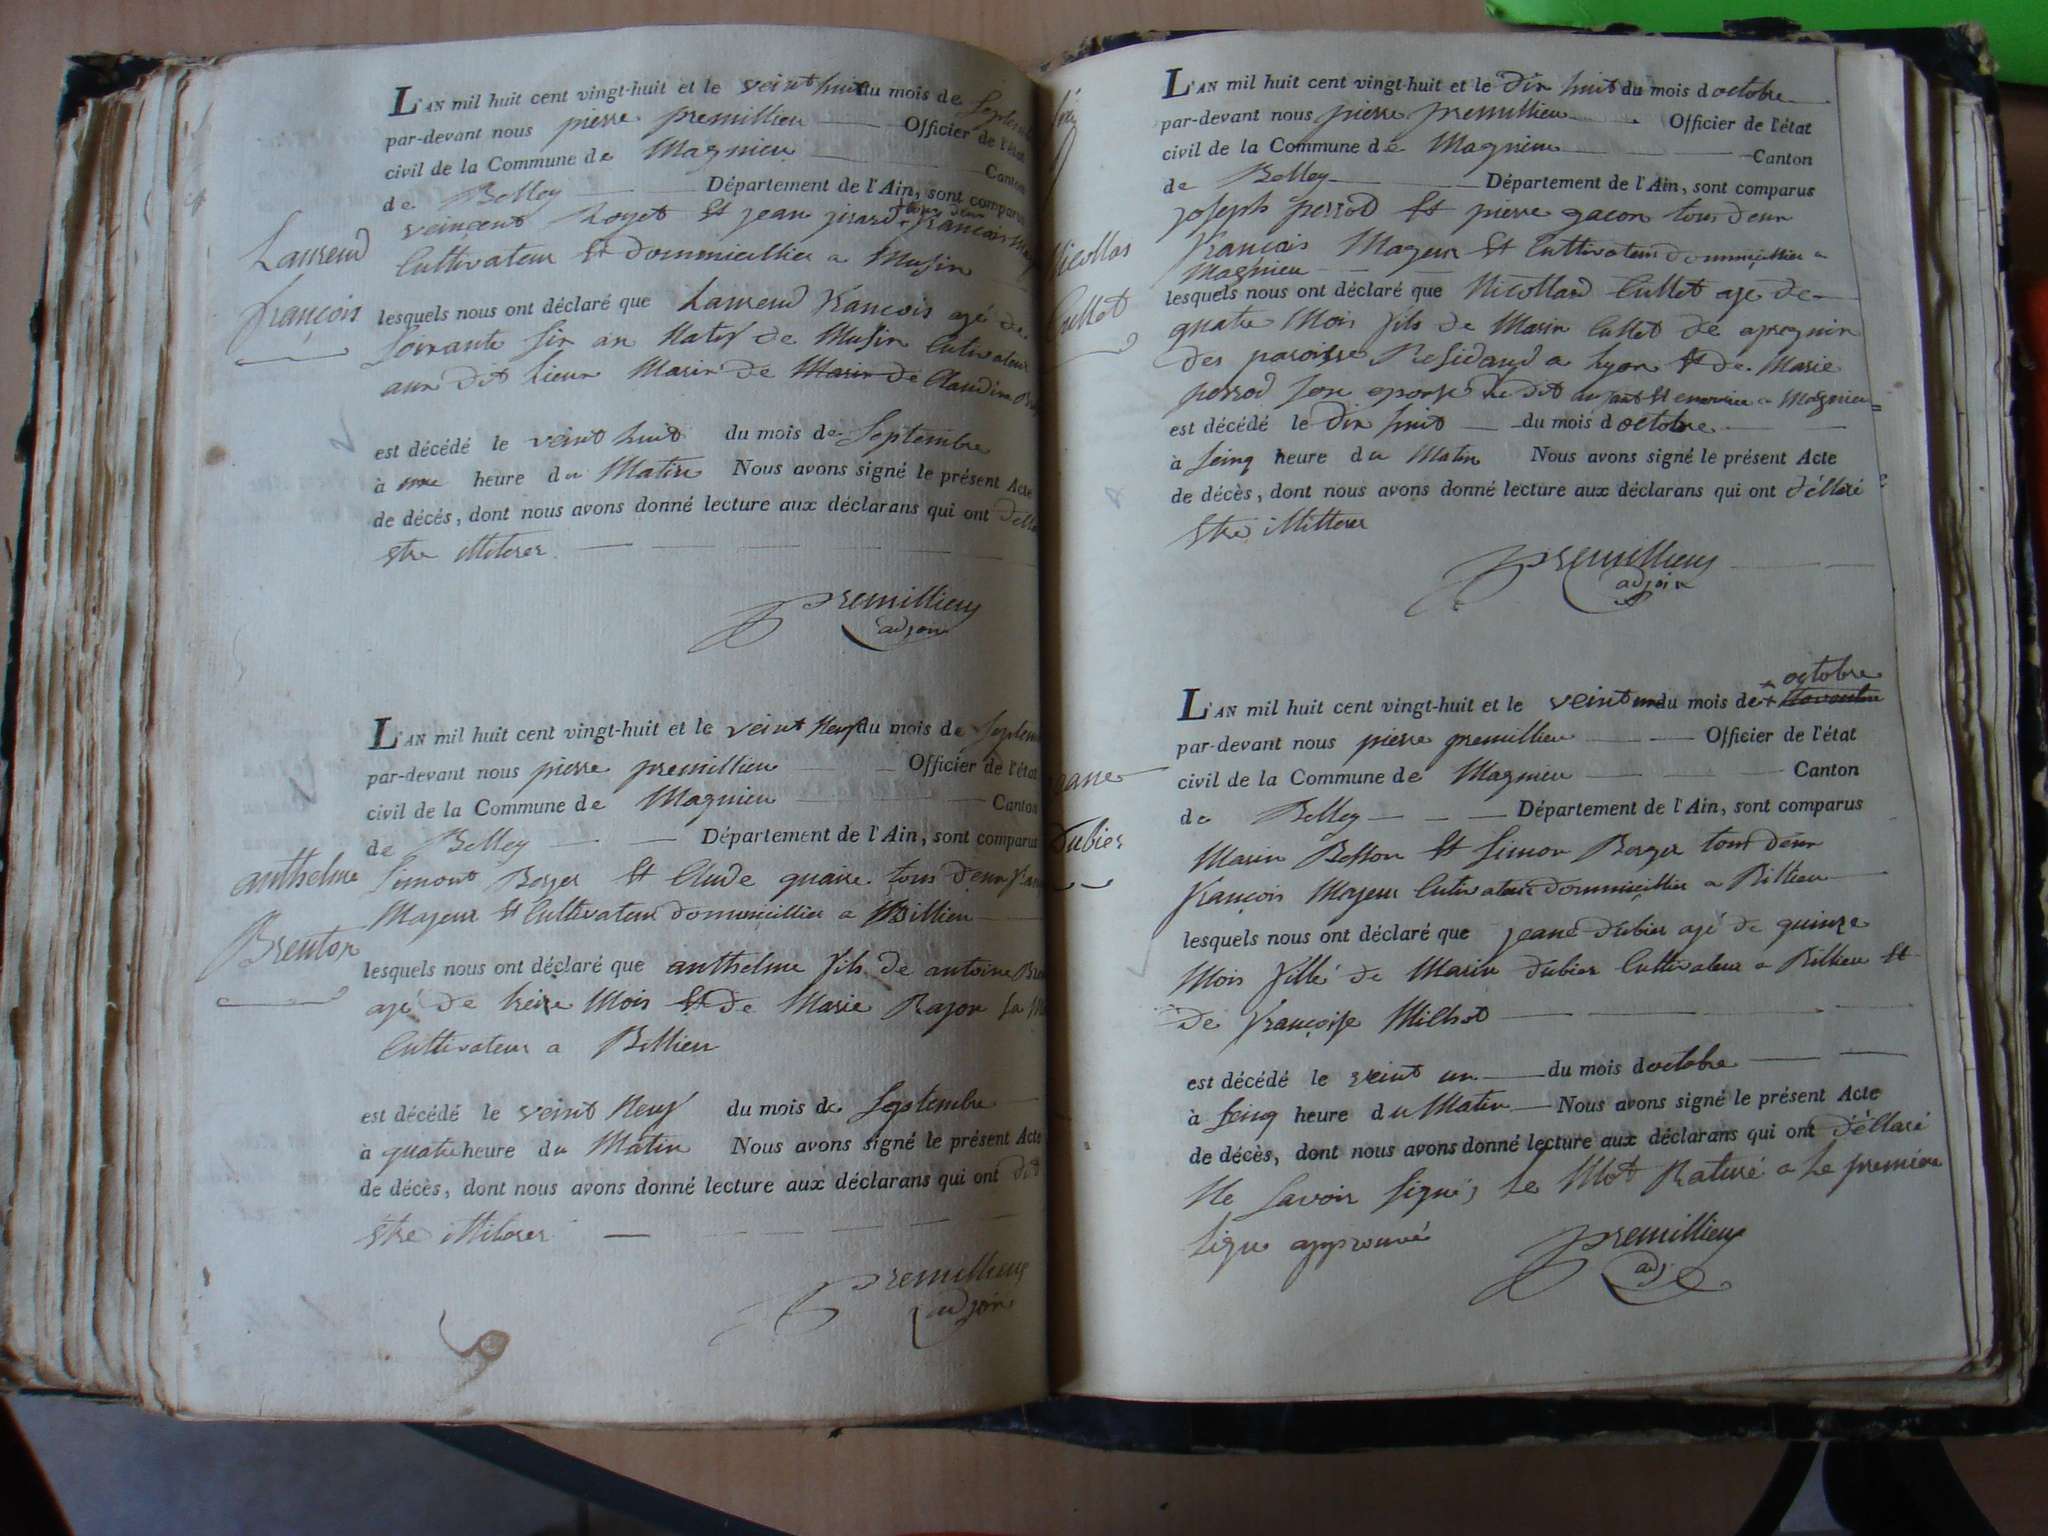 L'AN mil huit cent vingt-huit et le veint huit du mois de Septem
par-devant nous pierre premillieu Officier de l'état
civil de la Commune de Magnieu Canton
de Belley Département de l'Ain, sont comparus
veincent Royet Et jean jirard tous deux francois
Cultivateur Et dommicillier a Musin
Laurend
françois
lesquels nous ont déclaré que Laurend francois agé de
Soixante Six an Natif de Musin Cutivateur
aux dit Lieux Marin de Marin de Claudine
est décédé le veint huit du mois de Septembre
à une heure du Matin Nous avons signé le présent Acte
de décés, dont nous avons donné lecture aux déclarans qui ont
Etre illiterer
premillieu
adjoin
L'AN mil huit cent vingt-huit et le veint Neuf du mois de Septem
par-devant nous pierre premillieu Officier de l'état
civil de la Commune de Magnieu Canton
de Belley Département de l'Ain, sont comparut
anthelme
Brenton
Simont Berger Et Clude quaire tous deux
Majeur Et Cultivateur dommicillier a Billieu
lesquels nous ont déclaré que anthelme fils de antoine
agé de treize Mois Et de Marie Rajon
Cultivateur a Billieu
est décédé le veint Neuf du mois de Septembre
à quatre heure du Matin Nous avons signé le présent Acte
de décès, dont nous avons donné lecture aux déclarans qui ont dit
Etre illiterer
premillieu
adjoin
L'AN mil huit cent vingt-huit et le dix huit du mois d octobre
par-devant nous pierre premillieu Officier de l'état
civil de la Commune de Magnieu Canton
de Belley Département de l'Ain, sont comparus
joseph perrod Et pierre gacon tous deux
francais Majeur Et Cultivateur dommicillier a
Magnieu
Nicollas
Cullet
lesquels nous ont déclaré que Nicollad Cullet age de
quatre Mois fils de Marin Cullet de
des paroisse Residand a Lyon Et de Marie
perrod Son epouse Le dit a Magnieu
est décédé le Dix huit du mois d octobre
à Seinq heure du Matin Nous avons signé le présent Acte
de décès, dont nous avons donné lecture aux déclarans qui ont déllaré
Etre illitterer
premillieu
adjoin
L'AN mil huit cent vingt-huit et le veint un du mois de octobre
par-devant nous pierre premillieu Officier de l'état
civil de la Commune de Magnieu Canton
de Belley Département de l'Ain, sont comparus
Marin Besson Et Simon Berger tous deux
françois Majeur Cutivateur dommicillier a Billieu
Dubier
lesquels nous ont déclaré que jeane dubier agé de quinze
Mois fille de Marin dubier Cultivateur a Billieu Et
de françoise Milliet
est décédé le veint un du mois d octobre
à Seinq heure du Matin Nous avons signé le présent Acte
de décès, dont nous avons donné lecture aux déclarans qui ont déllaré
Ne Savoir Signé, Le Mot Raturé a Le premiere
Ligne approuvé
premillieu
adj